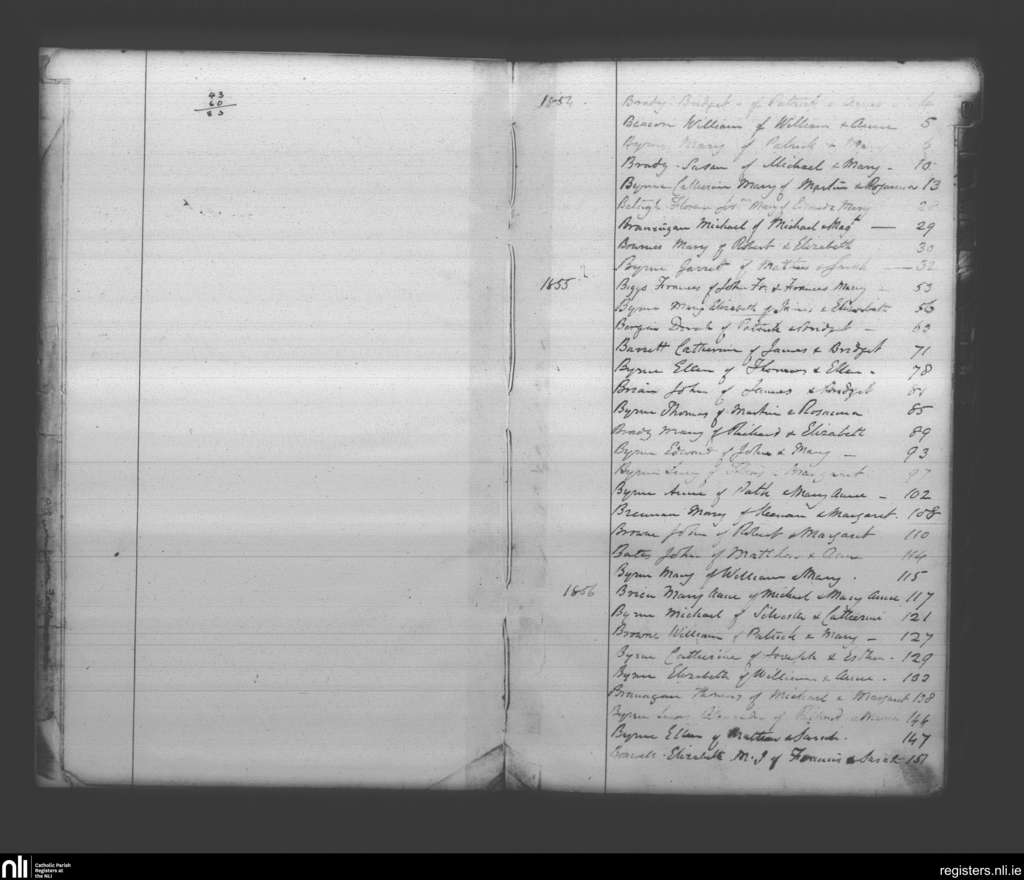 43
60
83
1854
Brady Bridget of Patrick & Agnes 4
Beacon William of William & Anne 5
Byrne Mary of Patrick & Mary
Brady Susan of Michael & Mary - 10
Byrne Catherine Mary of Martin & Rosanna 13
Mary of & Mary
Brannigan Michael of Michael & Mag^t — 29
Bownes Mary of Robert & Elizabeth 30
Byrne Garret of Matthew & Sarah — 32
1855
Biggs Frances of John Fr. & Frances Mary 53
Byrne Mary Elizabeth of James & Elizabeth 56
Bergin of Patrick & Bridget - 63
Barrett Catherine of James & Bridget 71
Byrne Ellen of Thomas & Ellen - 78
Brien John of James & Bridget 81
Byrne Thomas of Martin & Rosanna 85
Brady Mary of Richard & Elizabeth 89
Byrne Edward of John & Mary - 93
Byrne Lucy of Margaret 97
Byrne Anne of Patk & Mary Anne - 102
Brennan Mary of & Margaret 108
Browne John of Robert & Margaret 110
Bates John of Matthew & Ann 114
Byrne Mary of William & Mary . 115
1856
Brien Mary Anne of Michael & Mary Anne 117
Byrne Michael of Silvester & Catherine 121
Browne William of Patrick & Mary - 127
Byrne Catherine of Joseph & Esther - 129
Byrne Elizabeth of William & Anne - 133
Brannagan Thomas of Michael & Margaret 138
Byrne of & Maria 144
Byrne Ellen of Matthew & Sarah. 147
Elizabeth M. J of Francis & Sarah 151
nli
Catholic Parish
Registers at
the NLI
registers.nli.ie